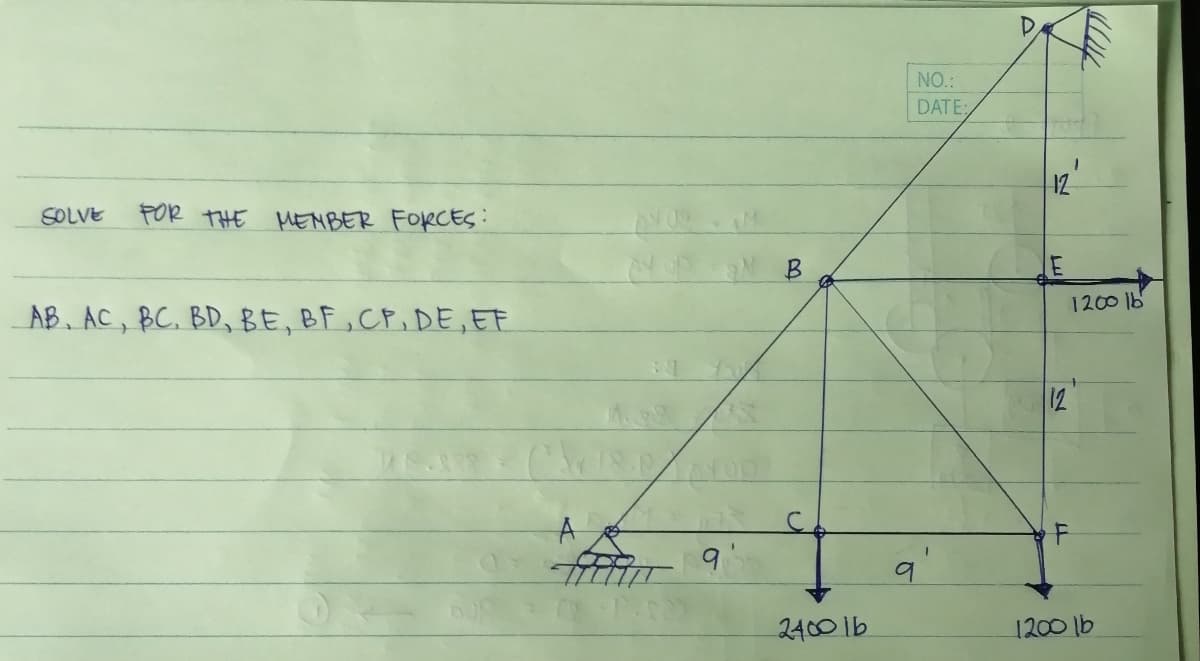 D
NO.:
DATE:
12'
SOLVE FOR THE MEMBER FORCES:
B
E
1200 lb
AB, AC, BC, BD, BE, BF, CF, DE, EF
12'
A
C
F
9'
9'
2400 lb
1200 lb